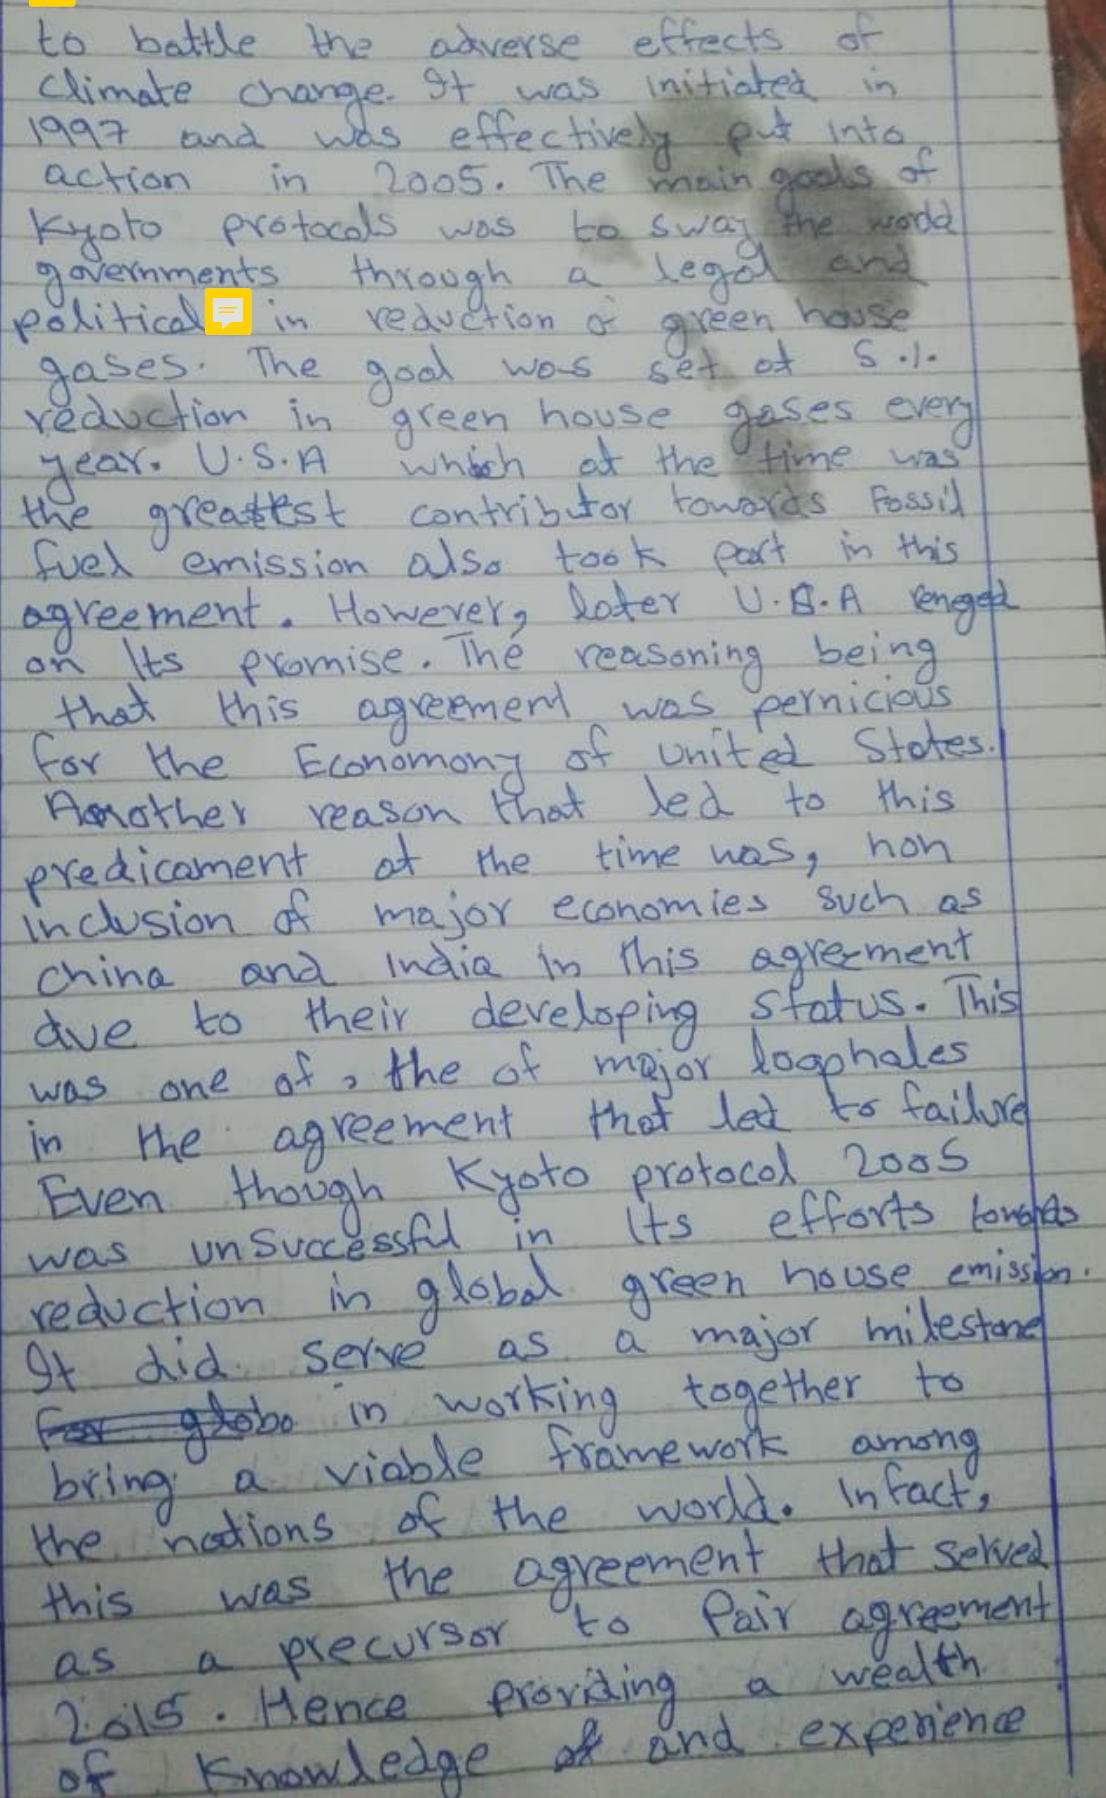 to battle the adverse effects of
climate change. It was initiated in
1997 and was effectively put into
action in 2005. The main goals of
Kyoto protocols was to sway the world
governments through a legal and
political in reduction of green house
gases. The goal was set at 5 %
reduction in green house gases every
year. U.S.A which at the time was
the greatest contributor towards Fossil
fuel emission also took part in this
agreement. However, later U.S.A reneged
on Its promise. The reasoning being
that this agreement was pernicious
for the Economony of United States.
Another reason that led to this
predicament at the time was, non
inclusion of major economies such as
china and India in this agreement
due to their developing status. This
was one of, the of major loophales
in the agreement that led to failure
Even though Kyoto protocol 2005
was unsuccessful in Its efforts towards
reduction in global green house emission.
It did serve as a major milestone
in working together to
bring a viable framework among
the nations of the world. Infact,
this was the agreement that served
as a precursor to Pair agreement
2015. Hence providing a wealth
of Knowledge and experience